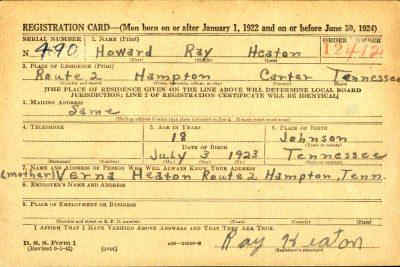 REGISTRATION CARD—(Men born on or after January 1, 1922 and on or before June 30, 1924)
SERIAL NUMBER 1. NAME (Print) ORDER NUMBER
N. 490 Howard Ray Heaton 12412
(First) (Middle) (Last)
2. PLACE OF RESIDENCE (Print)
Route 2 Hampton Carter Tennessee
(Number and street) (Town, township, village, or city) (County) (State)
[THE PLACE OF RESIDENCE GIVEN ON THE LINE ABOVE WILL DETERMINE LOCAL BOARD
JURISDICTION; LINE 2 OF REGISTRATION CERTIFICATE WILL BE IDENTICAL]
3. MAILING ADDRESS
Same
[Mailing address if other than place indicated on line 2. If same insert word same]
4. TELEPHONE 5. AGE IN YEARS 6. PLACE OF BIRTH
18 Johnson
DATE OF BIRTH (Town or county)
July 3 1923 Tennessee
(Exchange) (Number) (Mo.) (Day) (Yr.) (State or country)
7. NAME AND ADDRESS OF PERSON WHO WILL ALWAYS KNOW YOUR ADDRESS
(mother) Verna Heaton Route 2, Hampton, Tenn.
8. EMPLOYER'S NAME AND ADDRESS
9. PLACE OF EMPLOYMENT OR BUSINESS
(Number and street or R. F. D. number) (Town) (County) (State)
I AFFIRM THAT I HAVE VERIFIED ABOVE ANSWERS AND THAT THEY ARE TRUE.
D. S. S. Form 1
(Revised 6-1-42) (over) Ray Heaton